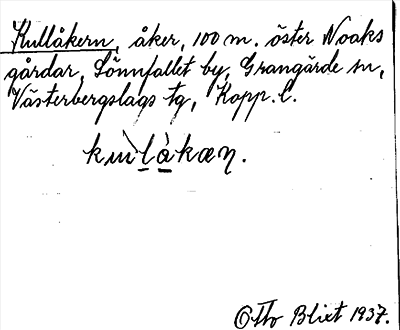 Kullåkern, åker, 100 m. öster Noaks
gårdar, Sönnfallet by, Grangärde sn,
Västerbergslags tg, Kopp. l.
Otto Blixt 1937.